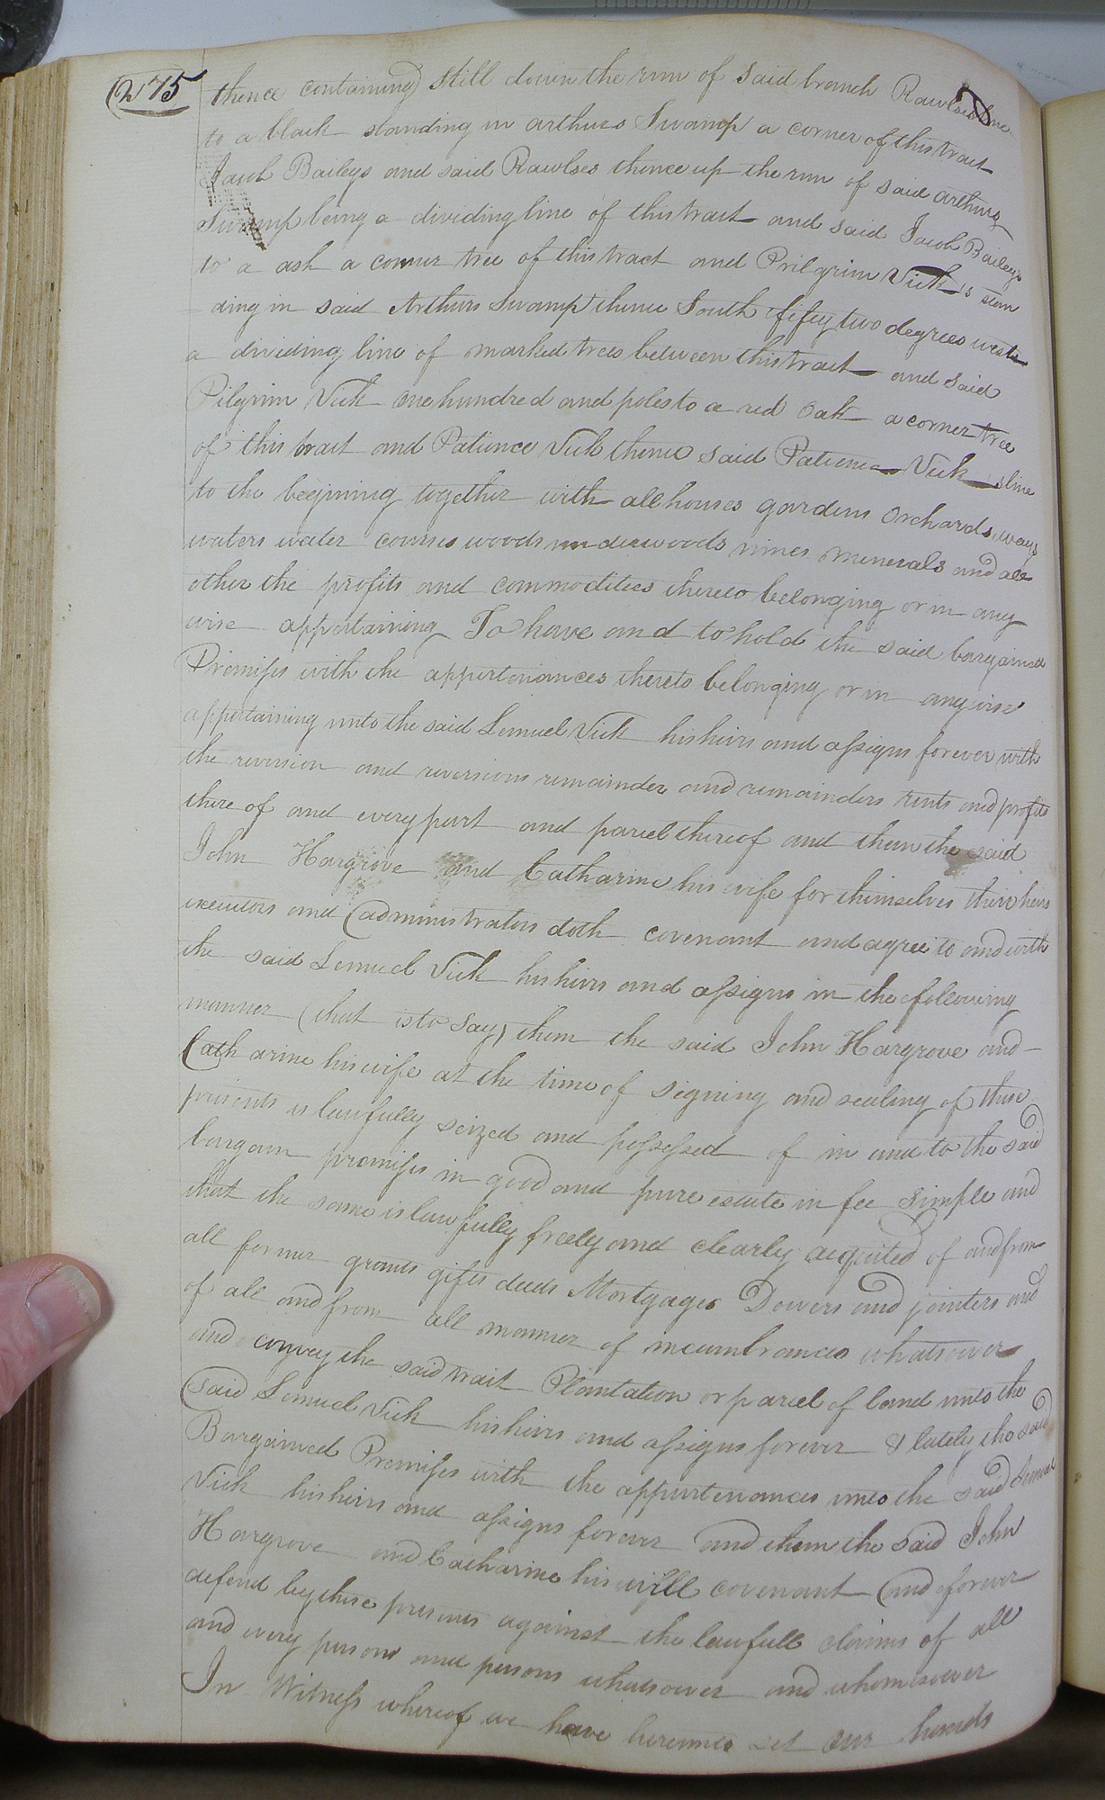 275
thence containing still down the run of said branch Rawlses line
to a black standing in arthurs Swamp a corner of this tract
Jacob Baileys and said Rawlses thence up the run of said arthurs
Swamp being a dividing line of this tract and said Jacob Baileys
to a ash a corner tree of this tract and Prilgrim Vick is stan
ding in said Arthurs Swamp thence South fifty two degrees west
a dividing line of marked trees between this tract and said
Pilgrim Vick one hundred and poles to a red oak a corner tree
of this tract and Patience Vick thence said Patience Vick s line
to the begining together with all houses gardens orchards ways
waters water courses woods underwoods mines minerals and all
other the profits and commodities thereto belonging or in any
wise appertaining To have and to hold the said bargained
Premises with the appurtenances thereto belonging or in any wise
appertaining unto the said Lemuel Vick his heirs and assigns forever with
the reversion and reversions remainder and remainders rents and profits
there of and every part and parcel thereof and them the said
John Hargrove and Catharine his wife for themselves their heirs
executors and administrators doth covenant and agree to and with
the said Lemuel Vick his heirs and assigns in the following
manner (that is to say) them the said John Hargrove and
Catharine his wife at the time of signing and sealing of these
presents is lawfully seized and possessed of in and to the said
bargain premises in good and pure estate in fee simple and
that the same is lawfully freely and clearly acquited of and from
all former grants gifts deeds Mortgages Dowers and jointers and
of all and from all manner of incumbrances whatsoever
and convey the said trait Plantation or parcel of land unto the
said Lemuel Vick his heirs and assigns forever & lately the said
Bargained Premises with the appurtenances unto the said Lemuel
Vick his heirs and assigns forever and them the said John
Hargrove and Catharine his will covenant and forever
defend by these presents against the lawfull claims of all
and every person and persons whatsoever and whomsoever
In Witness whereof we have hereunto set our hands